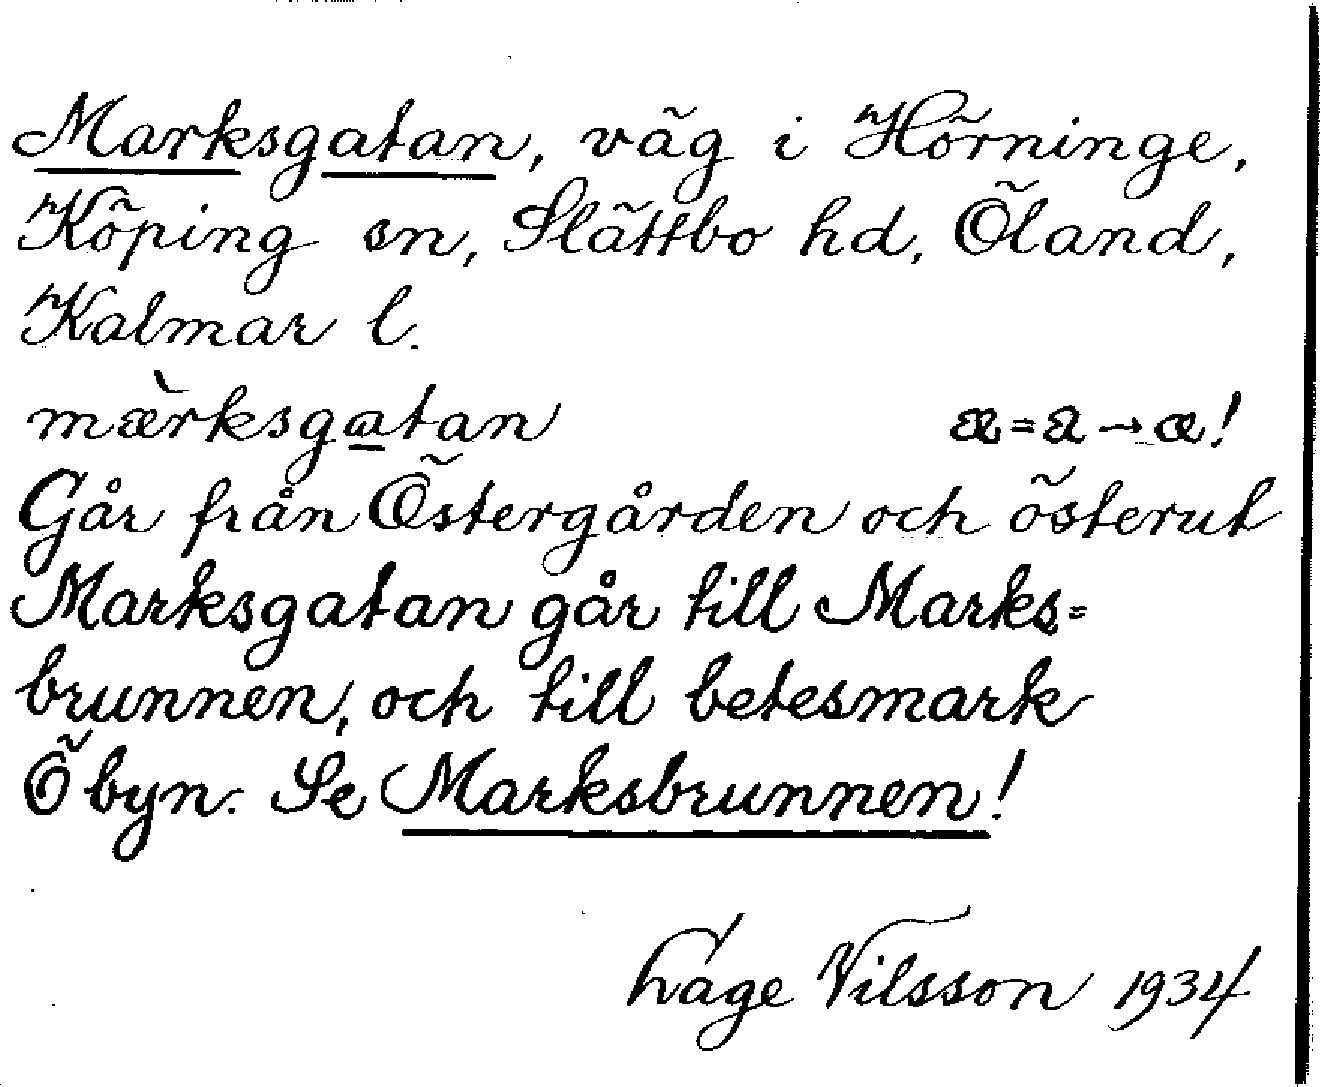 Marksgatan, väg i Hörninge,
Köping sn, Slättbo hd, Öland,
Kalmar l.
mæ̀rksgatan æ = a → æ!
Går från Östergården och österut
Marksgatan går till Marks=
brunnen, och till betesmark
Ö byn. Se Marksbrunnen!
Låge Nilsson 1934